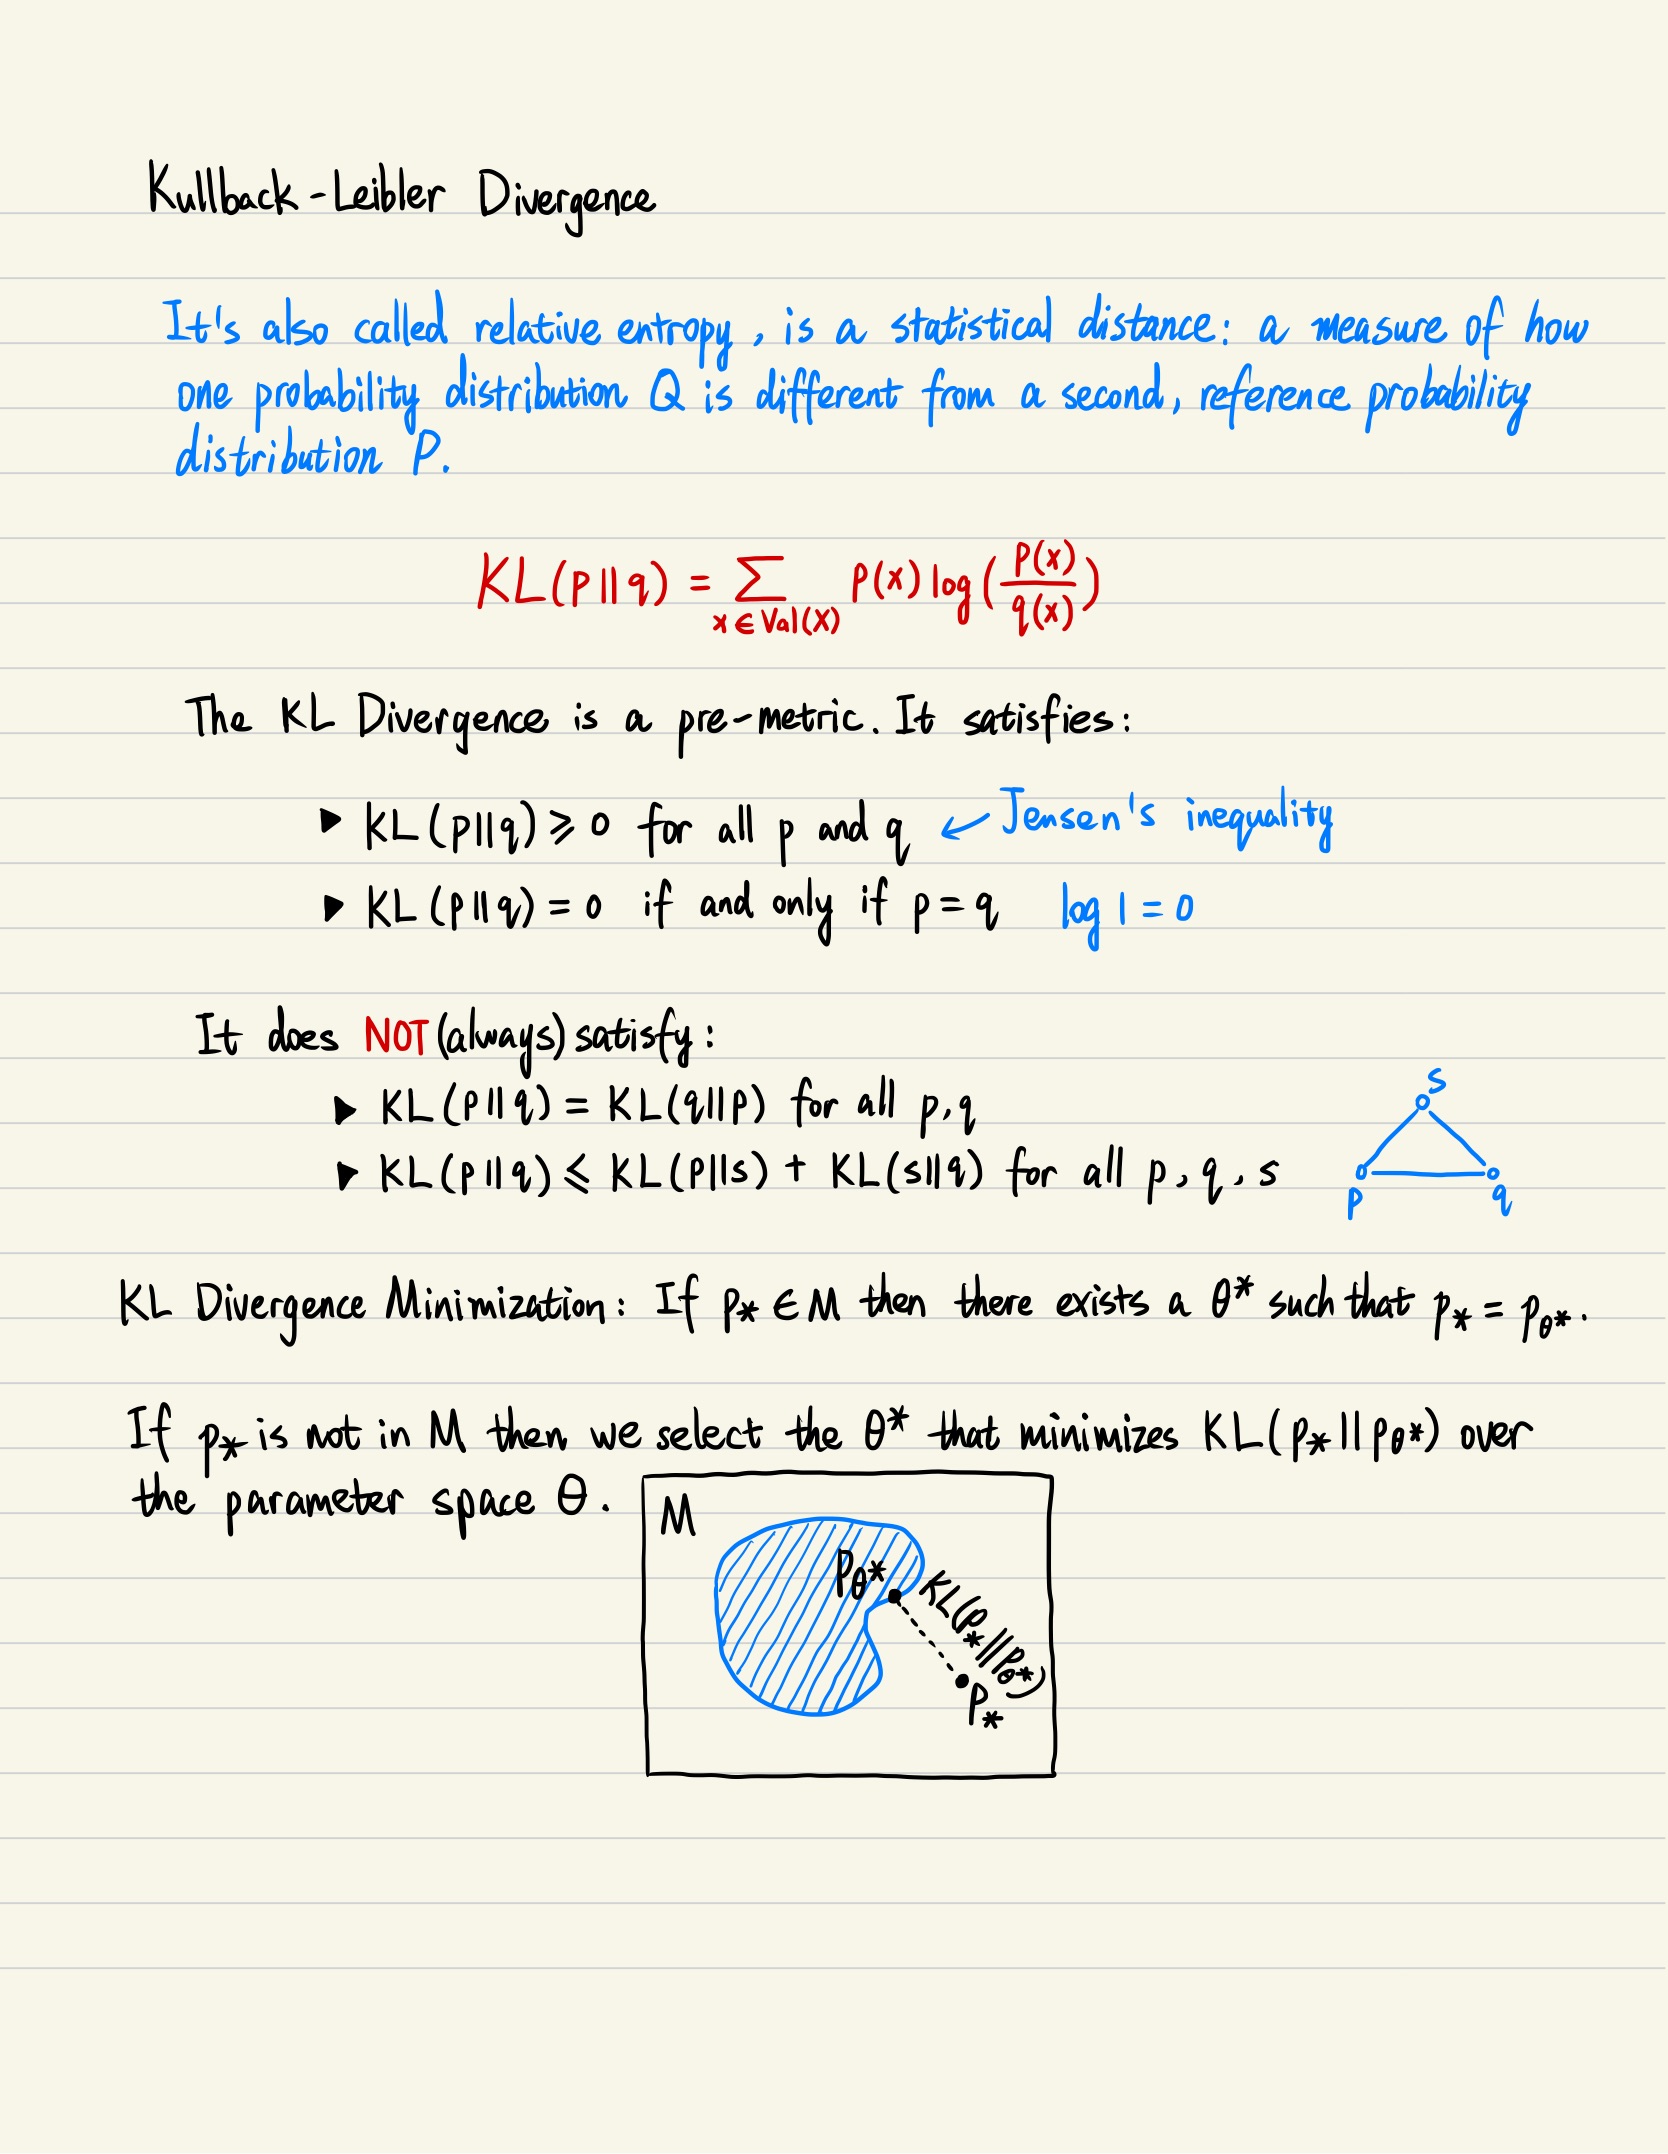 Kullback-Leibler Divergence
It's also called relative entropy, is a statistical distance: a measure of how
one probability distribution Q is different from a second, reference probability
distribution P.
KL(p||q) = ∑ p(x) log(p(x)/q(x))
x ∈ Val(X)
The KL Divergence is a pre-metric. It satisfies:
▶ KL(p||q) ⩾ 0 for all p and q ↙ Jensen's inequality
▶ KL(p||q) = 0 if and only if p = q log 1 = 0
It does NOT (always) satisfy:
▶ KL(p||q) = KL(q||p) for all p, q
▶ KL(p||q) ⩽ KL(p||s) + KL(s||q) for all p, q, s
s
p q
KL Divergence Minimization: If p* ∈ M then there exists a θ* such that p* = pθ*.
If p* is not in M then we select the θ* that minimizes KL(p*||pθ*) over
the parameter space Θ.
M
Pθ*
KL(p*||pθ*)
P*